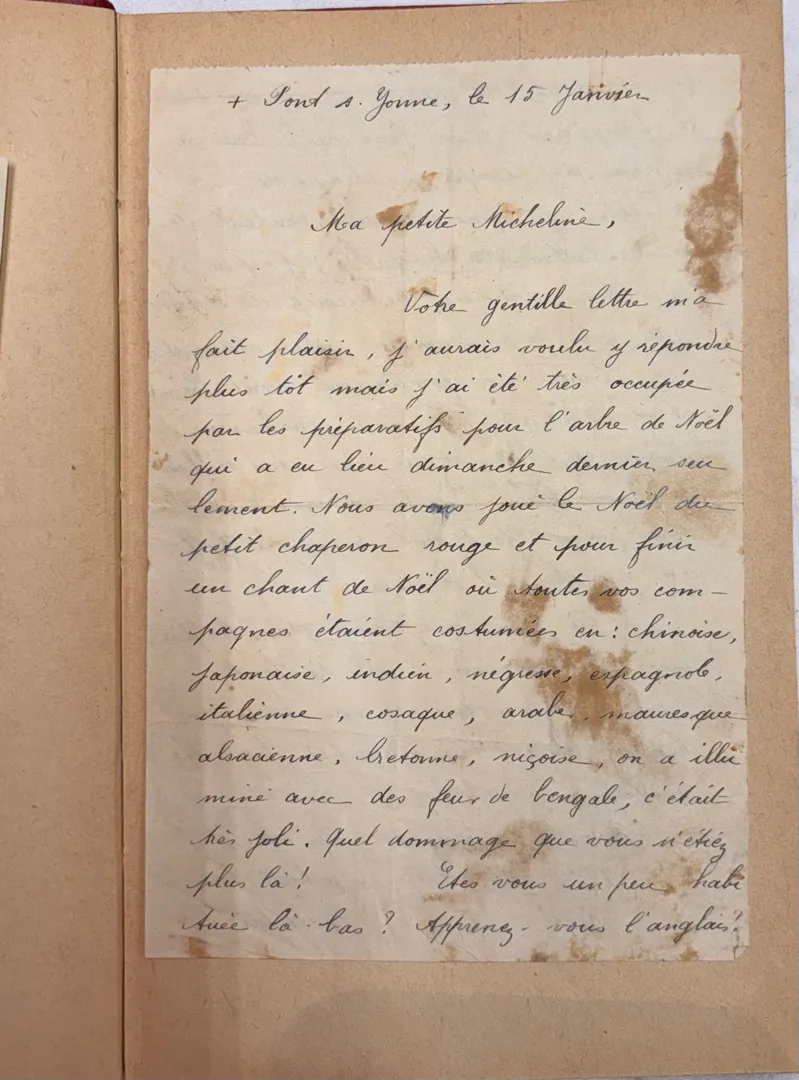 + Pont s. Yonne, le 15 Janvier
Ma petite Micheline,
Votre gentille lettre m'a
fait plaisir, j'aurais voulu y répondre
plus tôt mais j'ai été très occupée
par les préparatifs pour l'arbre de Noël
qui a eu lieu dimanche dernier seu
lement. Nous avons joué le Noël du
petit chaperon rouge et pour finir
un chant de Noël où toutes vos com-
pagnes étaient costumées en : chinoise,
japonaise, indien, négresse, espagnole,
italienne, cosaque, arabe, mauresque
alsacienne, bretonne, niçoise, on a illu
miné avec des feux de bengale, c'était
très joli. Quel dommage que vous n'étiez
plus là ! Etes vous un peu habi
tuée là-bas ? Apprenez-vous l'anglais ?